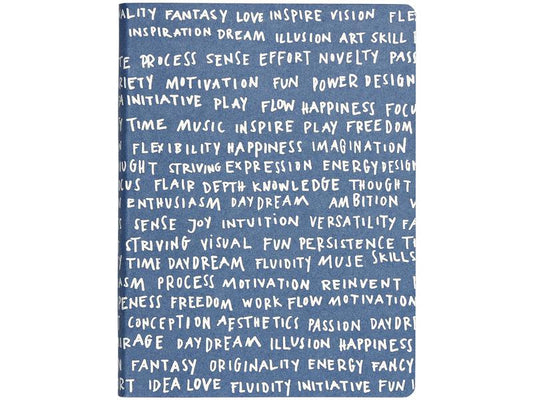 ALITY FANTASY LOVE INSPIRE VISION FLE
INSPIRATION DREAM ILLUSION ART SKILL
TE PROCESS SENSE EFFORT NOVELTY PASS
RIETY MOTIVATION FUN POWER DESIGN
A INITIATIVE PLAY FLOW HAPPINESS FOCU
Y TIME MUSIC INSPIRE PLAY FREEDOM
N FLEXIBILITY HAPPINESS IMAGINATION
UGHT STRIVING EXPRESSION ENERGY DESIGN
CUS FLAIR DEPTH KNOWLEDGE THOUGHT
N ENTHUSIASM DAYDREAM AMBITION V
T SENSE JOY INTUITION VERSATILITY FA
STRIVING VISUAL FUN PERSISTENCE T
Y TIME DAYDREAM FLUIDITY MUSE SKILLS
ASM PROCESS MOTIVATION REINVENT
PENESS FREEDOM WORK FLOW MOTIVATION
CONCEPTION AESTHETICS PASSION DAYDR
RAGE DAYDREAM ILLUSION HAPPINESS
N FANTASY ORIGINALITY ENERGY FANCY
RT IDEA LOVE FLUIDITY INITIATIVE FUN